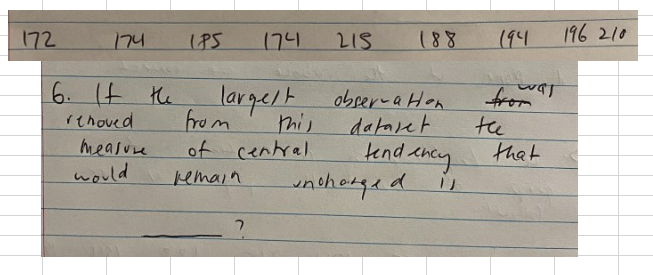 172 174 185 174 215 188 194 196 210
6. If the largest observation from was
removed from this dataset the
measure of central tendency that
would remain unchanged is
______ ?